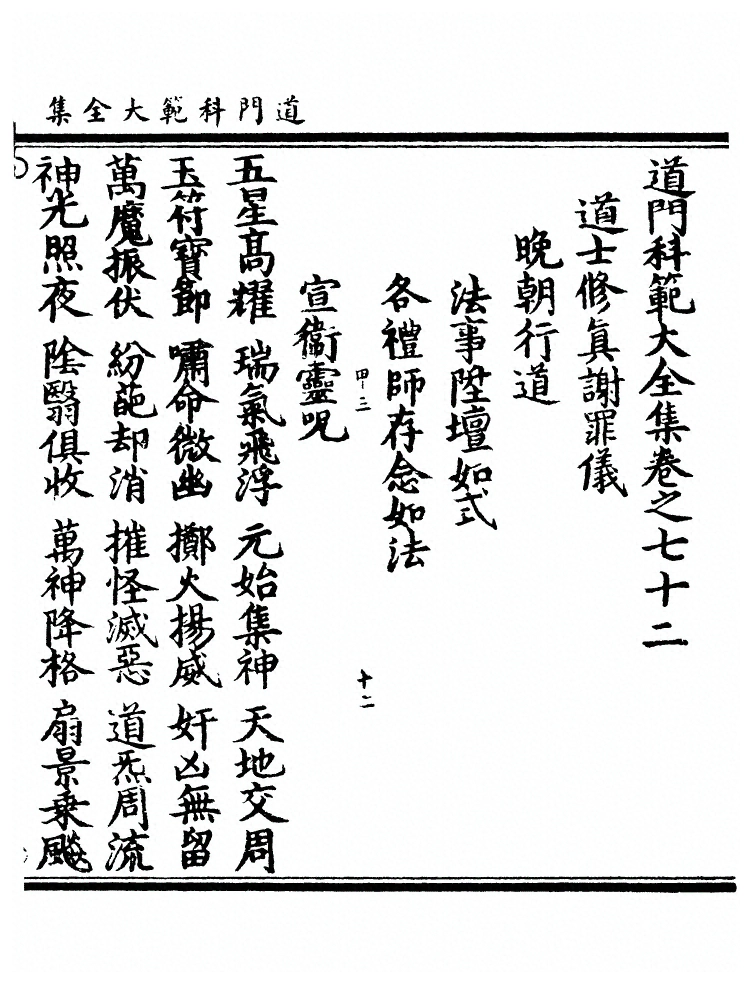 道門科範大全集
道門科範大全集卷之七十二
道士修眞謝罪儀
晚朝行道
法事陞壇如式
各禮師存念如法
四-三
十二
宣衞靈呪
五星高耀 瑞氣飛浮 元始集神 天地交周
玉符寶節 嘯命微幽 擲火揚威 奸凶無留
萬魔振伏 紛葩却消 摧怪滅惡 道炁周流
神光照夜 陰翳俱收 萬神降格 扇景乗飈